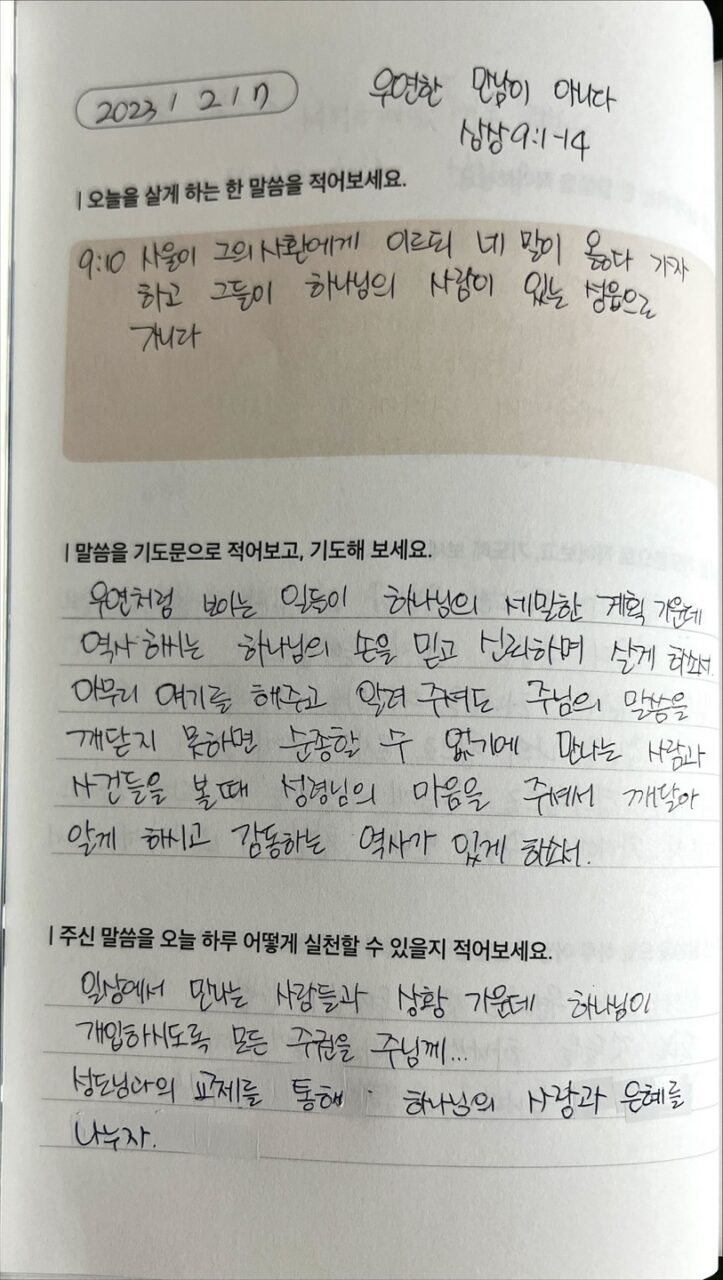 2023 / 2 / 7
우연한 만남이 아니다
삼상 9:1-14
| 오늘을 살게 하는 한 말씀을 적어보세요.
9:10 사울이 그의 사환에게 이르되 네 말이 옳다 가자
하고 그들이 하나님의 사람이 있는 성읍으로
가니라
| 말씀을 기도문으로 적어보고, 기도해 보세요.
우연처럼 보이는 일들이 하나님의 세밀한 계획 가운데
역사 하시는 하나님의 손을 믿고 신뢰하며 살게 하소서.
아무리 얘기를 해주고 알려 주셔도 주님의 말씀을
깨닫지 못하면 순종할 수 없기에 만나는 사람과
사건들을 볼때 성령님의 마음을 주셔서 깨달아
알게 하시고 감동하는 역사가 있게 하소서.
| 주신 말씀을 오늘 하루 어떻게 실천할 수 있을지 적어보세요.
일상에서 만나는 사람들과 상황 가운데 하나님이
개입하시도록 모든 주권을 주님께...
성도님과의 교제를 통해 하나님의 사랑과 은혜를
나누자.